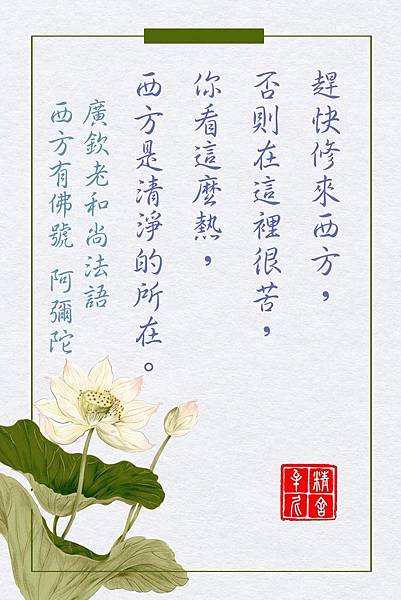 趕快修來西方，
否則在這裡很苦，
你看這麼熱，
西方是清淨的所在。
廣欽老和尚法語
西方有佛號 阿彌陀
精舍